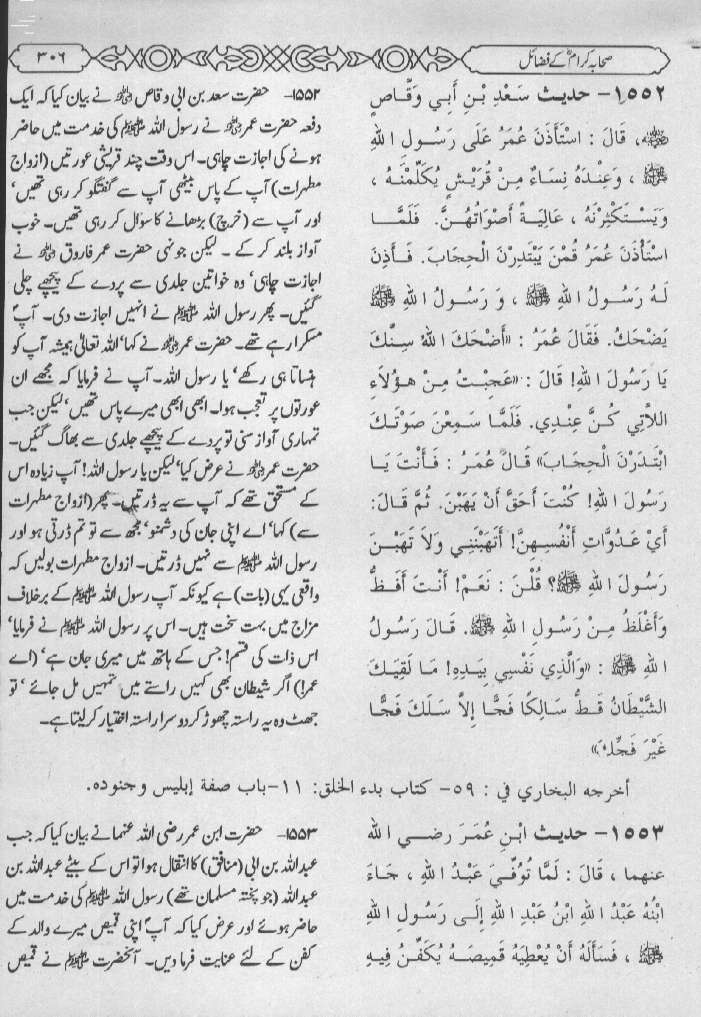 صحابہ کرامؓ کے فضائل
۳۰۶
۱۵۵۲- حدیث سَعْدِ بْنِ أَبِي وَقَّاصٍ
ﷺ، قَالَ : اسْتَأْذَنَ عُمَرُ عَلَى رَسُولِ اللهِ
ﷺ ، وَعِنْدَهُ نِسَاءٌ مِنْ قُرَيْشٍ يُكَلِّمْنَهُ ،
وَيَسْتَكْثِرْنَهُ ، عَالِيَةً أَصْوَاتُهُنَّ. فَلَمَّا
اسْتَأْذَنَ عُمَرُ قُمْنَ يَبْتَدِرْنَ الْحِجَابَ. فَأَذِنَ
لَهُ رَسُولُ اللهِ ﷺ ، وَرَسُولُ اللهِ ﷺ
يَضْحَكُ. فَقَالَ عُمَرُ : «أَضْحَكَ اللهُ سِنَّكَ
يَا رَسُولَ اللهِ! قَالَ : «عَجِبْتُ مِنْ هؤُلَاءِ
اللَّاتِي كُنَّ عِنْدِي. فَلَمَّا سَمِعْنَ صَوْتَكَ
ابْتَدَرْنَ الْحِجَابَ» قَالَ عُمَرُ : فَأَنْتَ يَا
رَسُولَ اللهِ! كُنْتَ أَحَقَّ أَنْ يَهَبْنَ. ثُمَّ قَالَ:
أَيْ عَدُوَّاتِ أَنْفُسِهِنَّ! أَتَهَبْنَنِي وَلَا تَهَبْنَ
رَسُولَ اللهِ ﷺ؟ قُلْنَ : نَعَمْ! أَنْتَ أَفَظُّ
وَأَغْلَظُ مِنْ رَسُولِ اللهِ ﷺ. قَالَ رَسُولُ
اللهِ ﷺ : «وَالَّذِي نَفْسِي بِيَدِهِ! مَا لَقِيَكَ
الشَّيْطَانُ قَطُّ سَالِكًا فَجًّا إِلاَّ سَلَكَ فَجًّا
غَيْرَ فَجِّكَ»
۱۵۵۲- حضرت سعد بن ابی وقاص ؓ نے بیان کیا کہ ایک
دفعہ حضرت عمر ؓ نے رسول اللہ ﷺ کی خدمت میں حاضر
ہونے کی اجازت چاہی۔ اس وقت چند قریشی عورتیں (ازواج
مطہرات) آپ کے پاس بیٹھی آپ سے گفتگو کر رہی تھیں،
اور آپ سے (خرچ) بڑھانے کا سؤال کر رہی تھیں۔ خوب
آواز بلند کر کے ۔ لیکن جونہی حضرت عمر فاروق ؓ نے
اجازت چاہی، وہ خواتین جلدی سے پردے کے پیچھے چلی
گئیں۔ پھر رسول اللہ ﷺ نے انہیں اجازت دی۔ آپؐ
مسکرا رہے تھے۔ حضرت عمر ؓ نے کہا، اللہ تعالیٰ ہمیشہ آپ کو
ہنساتا ہی رکھے، یا رسول اللہ۔ آپ نے فرمایا کہ مجھے ان
عورتوں پر تعجب ہوا۔ ابھی ابھی میرے پاس تھیں، لیکن جب
تمہاری آواز سنی تو پردے کے پیچھے جلدی سے بھاگ گئیں۔
حضرت عمر ؓ نے عرض کیا، لیکن یا رسول اللہ! آپ زیادہ اس
کے مستحق تھے کہ آپ سے یہ ڈرتیں۔ پھر (ازواج مطہرات
سے) کہا، اے اپنی جان کی دشمنو، مجھ سے تو تم ڈرتی ہو اور
رسول اللہ ﷺ سے نہیں ڈرتیں۔ ازواج مطہرات بولیں کہ
واقعی یہی (بات) ہے کیونکہ آپ رسول اللہ ﷺ کے برخلاف
مزاج میں بہت سخت ہیں۔ اس پر رسول اللہ ﷺ نے فرمایا،
اس ذات کی قسم! جس کے ہاتھ میں میری جان ہے، (اے
عمر!) اگر شیطان بھی کہیں راستے میں تمہیں مل جائے ، تو
جھٹ وہ یہ راستہ چھوڑ کر دوسرا راستہ اختیار کر لیتا ہے۔
أخرجه البخاري في : ٥٩- كتاب بدء الخلق: ١١-باب صفة إبليس وجنوده.
۱۵۵۳- حديث ابْنِ عُمَرَ رضي الله
عنهما ، قَالَ : لَمَّا تُوُفِّيَ عَبْدُ اللهِ ، جَاءَ
ابْنُهُ عَبْدُ اللهِ ابْنُ عَبْدِ اللهِ إِلَى رَسُولِ اللهِ
ﷺ ، فَسَأَلَهُ أَنْ يُعْطِيَهُ قَمِيصَهُ يُكَفِّنُ فِيهِ
۱۵۵۳- حضرت ابن عمر رضی اللہ عنہما نے بیان کیا کہ جب
عبداللہ بن ابی (منافق) کا انتقال ہوا تو اس کے بیٹے عبداللہ بن
عبداللہ (جو پختہ مسلمان تھے) رسول اللہ ﷺ کی خدمت میں
حاضر ہوئے اور عرض کیا کہ آپؐ اپنی قمیص میرے والد کے
کفن کے لئے عنایت فرما دیں۔ آنحضرت ﷺ نے قمیص